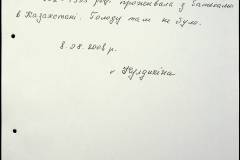 род. проживала у батьками
в Казахстані. Голоду там не було.
8.08.2008 р.